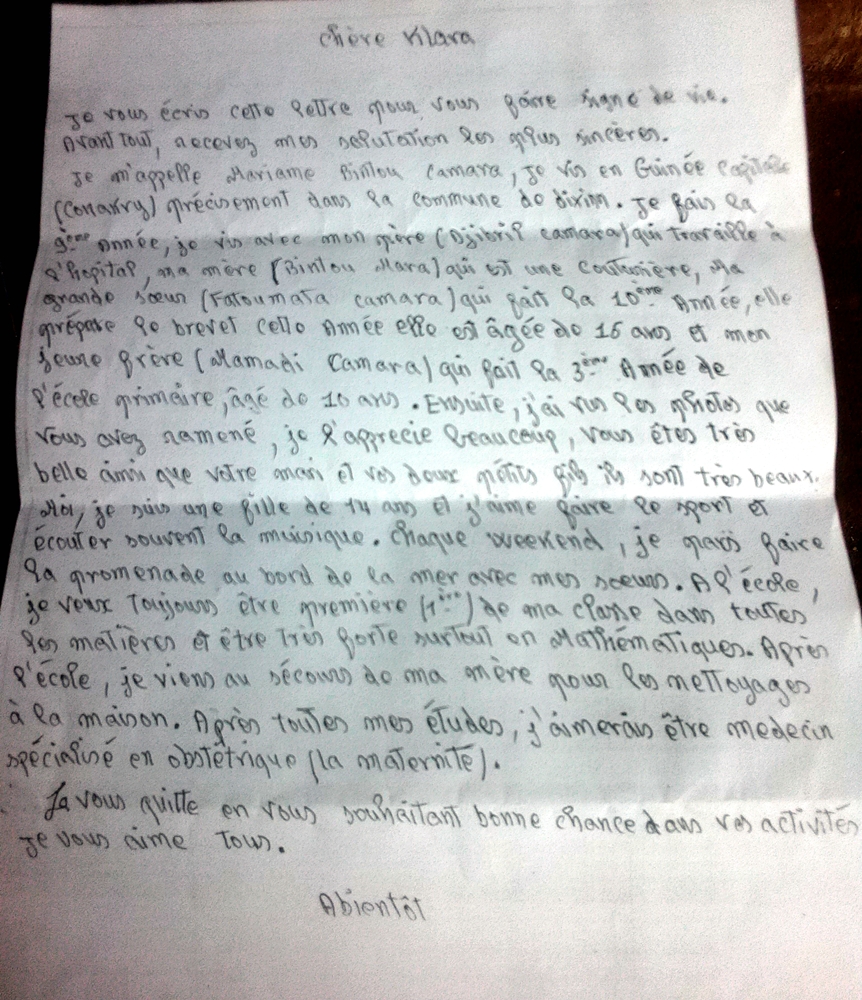 chère Klara
Je vous écris cette lettre pour vous faire signe de vie.
Avant tout, recevez mes salutation les plus sincères.
Je m'appelle Mariame Bintou Camara, Je vis en Guinée capitale
(Conakry) précisement dans la commune de dixinn. Je fais la
9ème Année, je vis avec mon père (Djibril camara) qui travaille à
l'hopital, ma mère (Bintou Mara) qui est une couturière, Ma
grande soeur (Fatoumata camara) qui fait la 10ème Année, elle
prépare le brevet cette Année elle est âgée de 16 ans et mon
jeune frère (Mamadi Camara) qui fait la 3ème Année de
l'école primaire, âgé de 10 ans. Ensuite, j'ai vus les photos que
vous avez ramené, je l'apprecie beaucoup, vous êtes très
belle ainsi que votre mari et vos deux métits fils ils sont très beaux.
Moi, je suis une fille de 14 ans et j'aime faire le sport et
écouter souvent la muisique. Chaque weekend, je pars faire
la promenade au bord de la mer avec mes soeurs. A l'école,
je veux toujours être première (1ère) de ma classe dans toutes
les matières et être très forte surtout en Mathématiques. Après
l'école, je viens au sécours de ma mère pour les nettoyages
à la maison. Après toutes mes études, j'aimerais être medecin
spécialisé en obstétrique (la maternité).
Ja vous quitte en vous souhaitant bonne chance dans vos activités
Je vous aime tous.
Abientôt